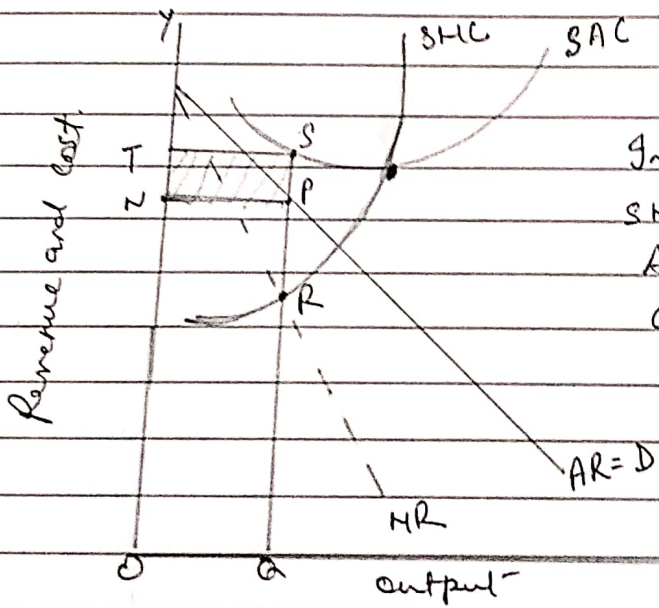 Y
SMC
SAC
Revenue and cost.
T
S
Z
P
R
AR=D
MR
O
Q
output